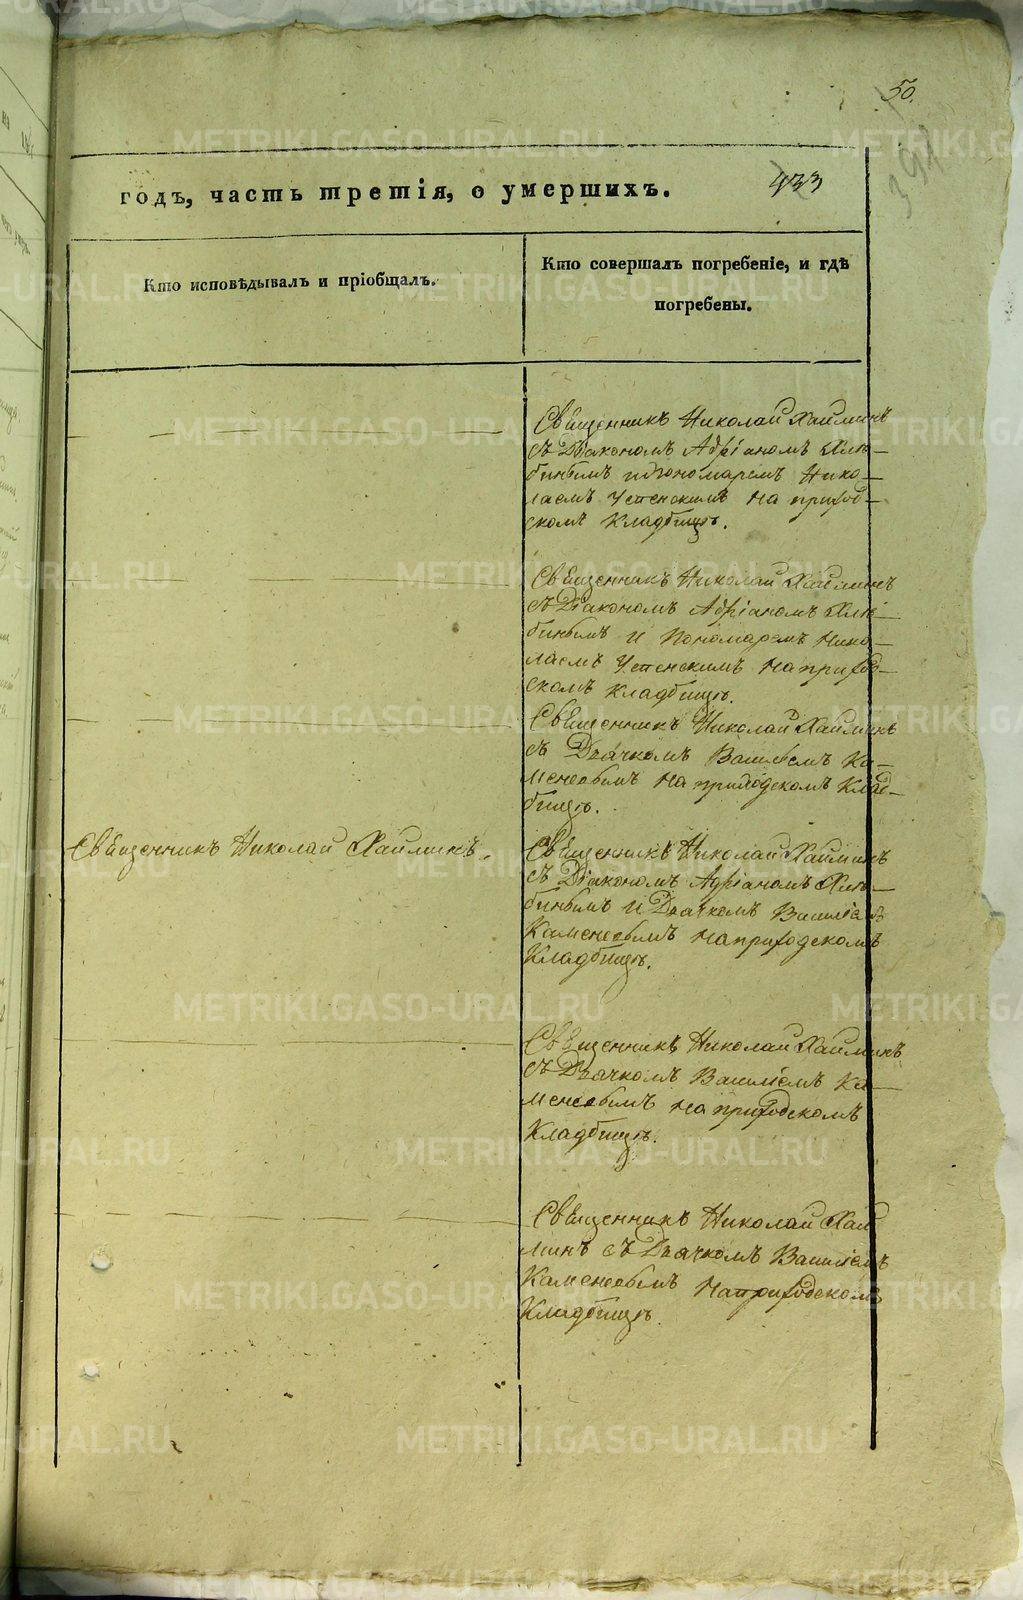 50.
394
433
годъ, часть третія, о умершихъ.
Кто исповѣдывалъ и пріобщалъ.
Кто совершалъ погребеніе, и гдѣ
погребены.
Священникъ Николай Хайминъ
съ Діакономъ Адріаномъ Хлю-
биныМъ и пономаремъ Нико-
лаемъ Успенскимъ на приход-
скомъ Кладбищѣ.
Священникъ Николай Хайминъ
съ Діакономъ Адріаномъ Хлю-
бинымъ и Пономаремъ Нико-
лаемъ Успенскимъ на приход-
скомъ Кладбищѣ.
Священникъ Николай Хайминъ
съ Дьячкомъ Василіемъ Ка-
меневымъ на приходскомъ Клад-
бищѣ.
Священникъ Николай Хайминъ.
Священникъ Николай Хайминъ
съ Діакономъ Адріаномъ Хлю-
бинымъ и Дьячкомъ Василіемъ
Каменевымъ на приходскомъ
Кладбищѣ.
Священникъ Николай Хайминъ
съ Дьячкомъ Василіемъ Ка-
меневымъ на приходскомъ
Кладбищѣ.
Священникъ Николай Хай-
минъ съ Дьячкомъ Василіемъ
Каменевымъ на приходскомъ
Кладбищѣ.
METRIKI.GASO-URAL.RU